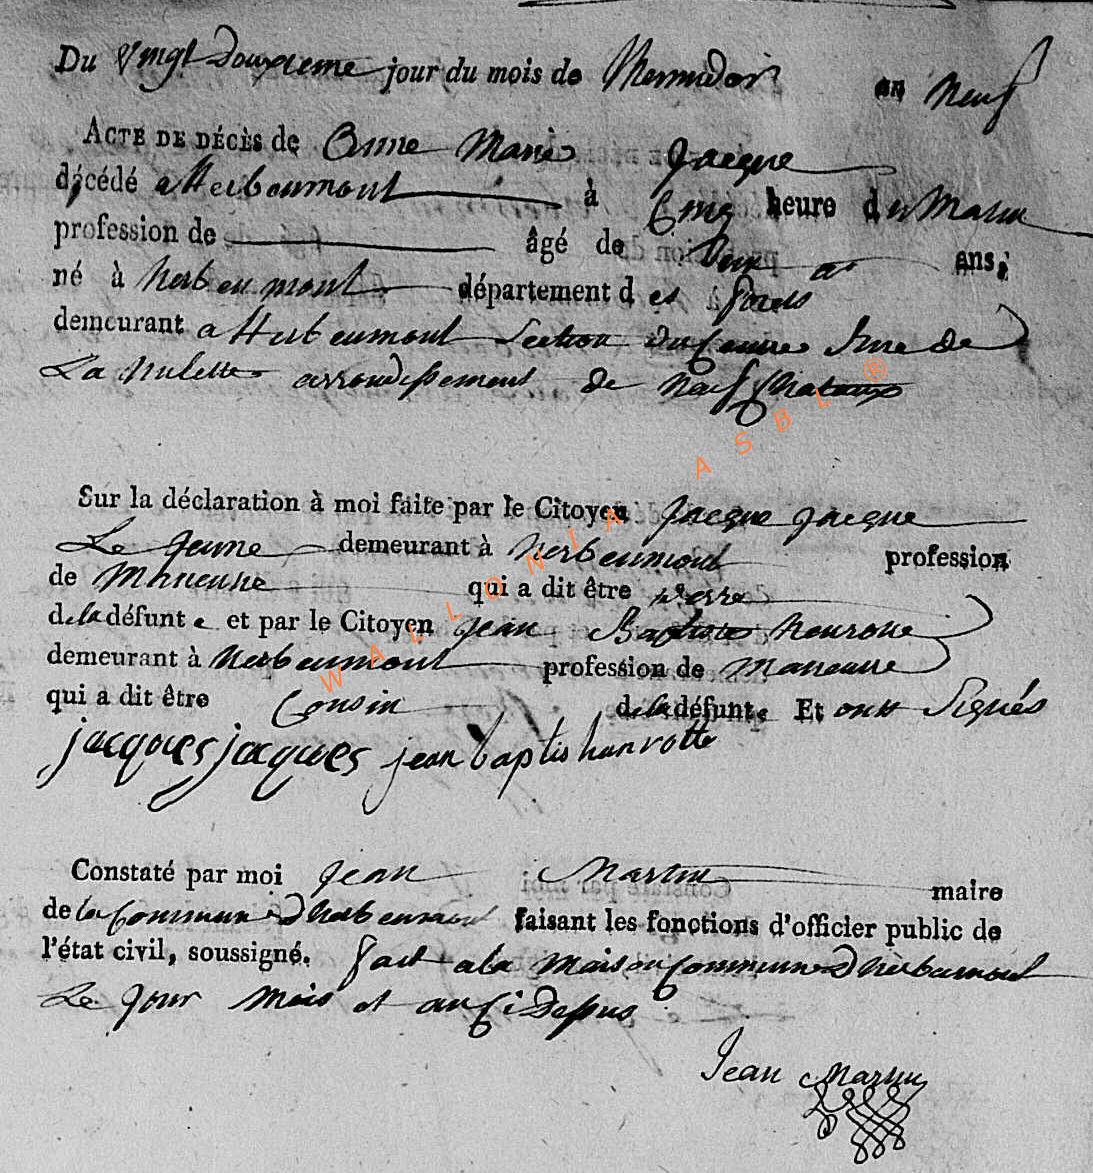 Du Vingt Douxieme jour du mois de Thermidor an neuf
ACTE DE DÉCÈS de Anne Marie Jacque
décédé a Herbeumont à Cinq heure du Matin
profession de âgé de Deux ans.
né à herbeumont département des forets
demeurant a Herbeumont Section du Centre Rue de
La arrondissement de neufchateaux
Sur la déclaration à moi faite par le Citoyen Jacque Jacque
Le Jeune demeurant à herbeumont profession
de Maneuve qui a dit être perre
de la défunte et par le Citoyen Jean Baptiste
demeurant à herbeumont profession de Maneuve
qui a dit être Cousin de la défunte Et ont Signés
jacques jacques jean baptis hanrotte
Constaté par moi Jean Martin maire
de la Commune Dherbeumont faisant les fonctions d'officier public de
l'état civil, soussigné. fait a la maison Commune Dherbeumont
Le Jour Mois et an Ci Depus
Jean Martin
WALLONIA ASBL ®